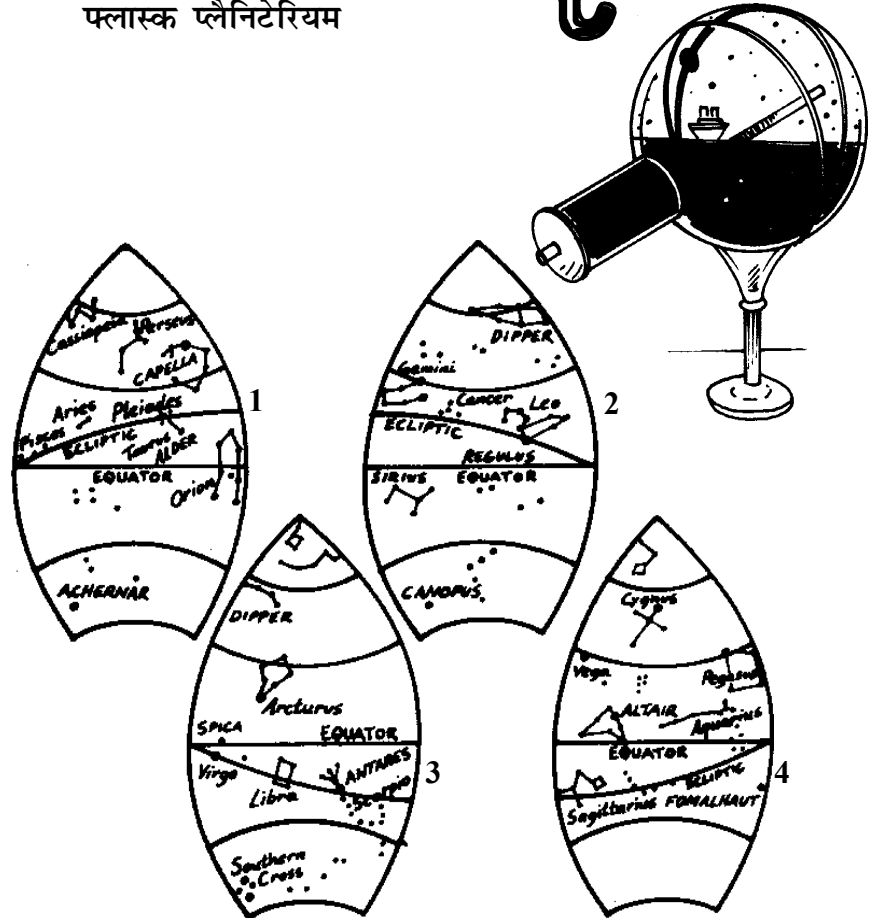 फ्लास्क प्लैनिटेरियम
Cassiopeia
Perseus
CAPELLA
Aries
Pleiades
Pisces
ECLIPTIC
Taurus
ALDER
EQUATOR
Orion
ACHERNAR
1
DIPPER
Gemini
Cancer
Leo
ECLIPTIC
REGULUS
SIRIUS
EQUATOR
CANOPUS
2
DIPPER
Arcturus
SPICA
EQUATOR
Virgo
Libra
ANTARES
Scorpio
Southern
Cross
3
Cygnus
Vega
Pegasus
ALTAIR
Aquarius
EQUATOR
ECLIPTIC
Sagittarius
FOMALHAUT
4